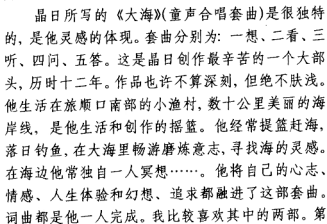 晶日所写的《大海》(童声合唱套曲)是很独特
的,是他灵感的体现。套曲分别为:一想、二看、三
听、四问、五答。这是晶日创作最辛苦的一个大部
头,历时十二年。作品也许不算深刻,但绝不肤浅。
他生活在旅顺口南部的小渔村,数十公里美丽的海
岸线,是他生活和创作的摇篮。他经常提篮赶海,
落日钓鱼,在大海里畅游磨炼意志,寻找海的灵感。
在海边他常独自一人冥想……。他将自己的心志、
情感、人生体验和幻想、追求都融进了这部套曲。
词曲都是他一人完成。我比较喜欢其中的两部。